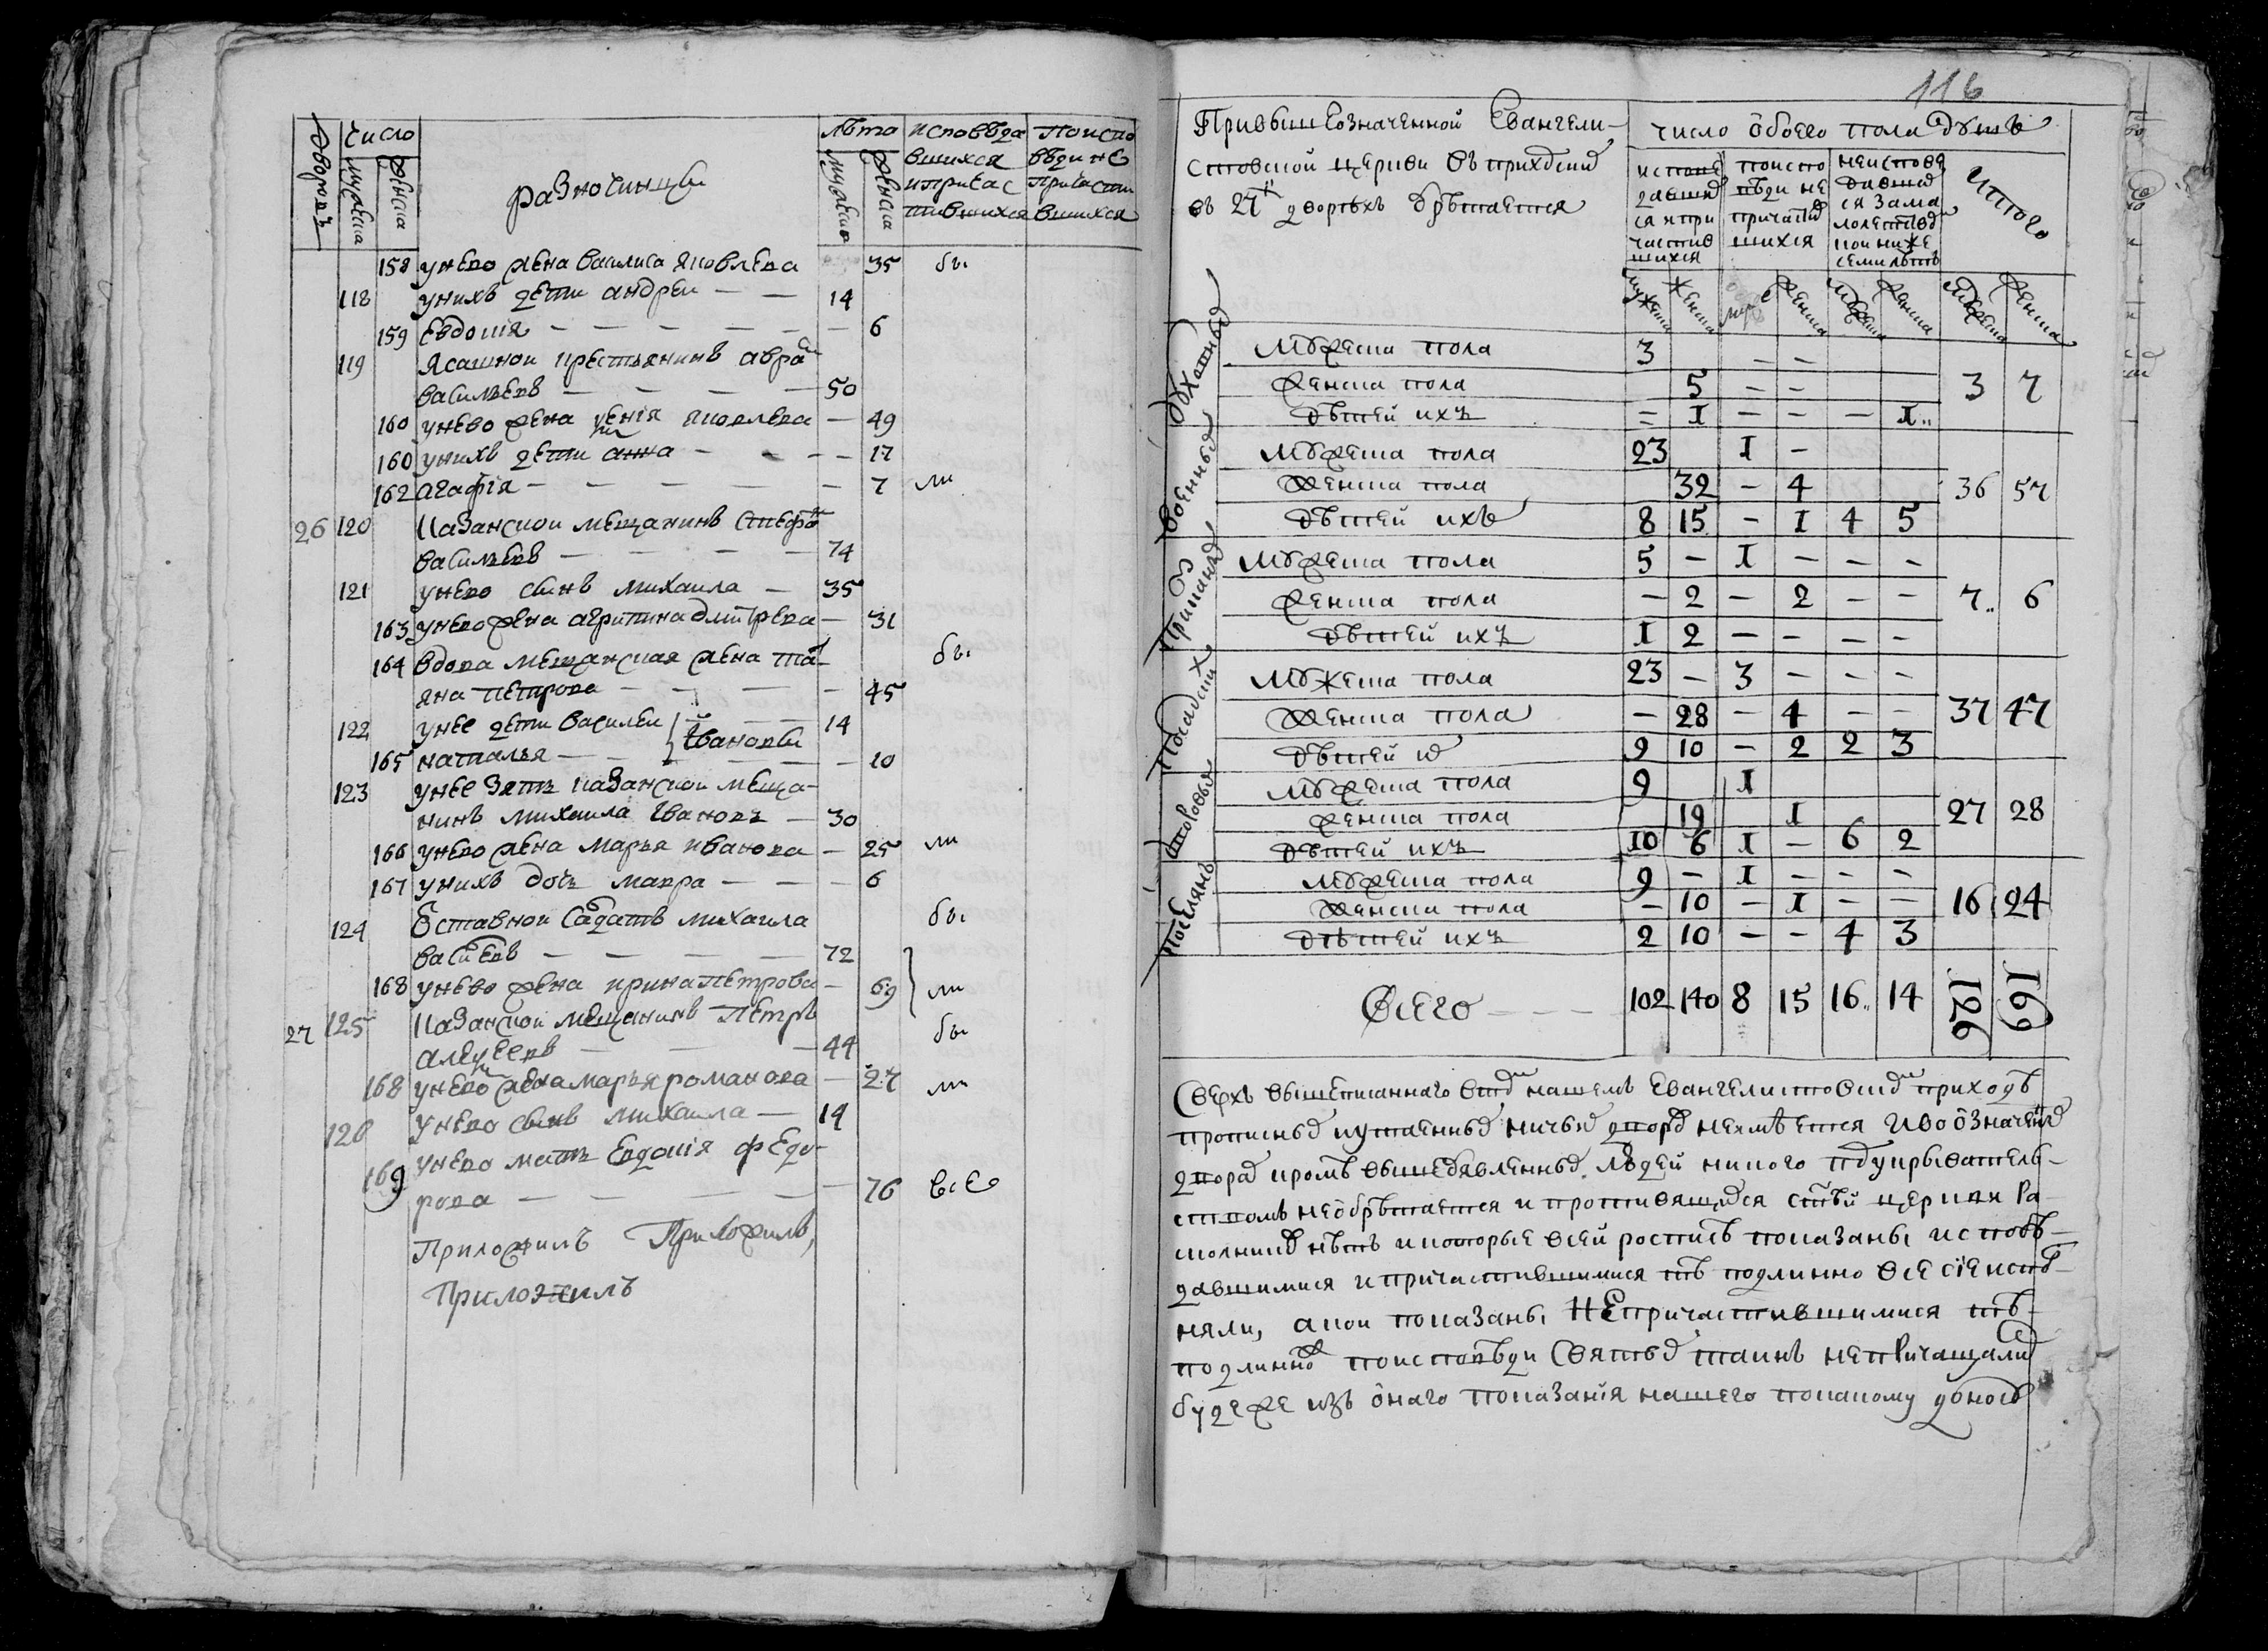 Дворовъ
Число
мужеска
женска
разночинцы
лѣта
мужеска
женска
исповѣда
вшихся
и причас
тившихся
По испо
вѣди не
причасти
вшихся
158 у него жена василиса яковлева 35 бы
118 у нихъ дети андреи — — 14
159 Евдокия — — — — — — 6
119 Ясашной крестьянинъ авра
васильевъ — — — — 50
160 у него жена ксения яковлева — 49
160 у нихъ дети анна — — — — 17
162 агафiя — — — — — — 7 ли
26 120 Казанскои мещанинъ стефа
васильевъ — — — — 74
121 у него сынъ михаила — 35
163 у него жена агрипина дмитрева — 31
164 вдова мещанская жена тать бы
яна петрова — — — — 45
122 у нее дети василеи — — 14
165 наталья — — Ивановы — 10
123 у нее зять казанскои меща-
нинъ михаила Ивановъ — 30
166 у него жена марья иванова — 25 ли
167 у нихъ дочь мавра — — — 6
124 Отставнои салдатъ михаила бы
васильевъ — — — — 72
168 у него жена ирина петрова — 69 ли
27 125 Казанскои мещанинъ Петръ бы
алексеевъ — — — 44
168 у него жена марья романова — 27 ли
126 у него сынъ михаила — 19
169 у него мать евдокiя федо-
рова — — — — 76 всѣ
Приложилъ Приложилъ,
Приложилъ
116
При вышеозначенной Евангели-
стовской церкви въ приходскихъ
въ 27и дворѣхъ обрѣтается
число обоего пола душъ
исповѣ
давших
ся и при
частив
шихся
по испо
вѣди не
причастив
шихся
не исповѣ
давших
ся за ма
лолетством
кои ниже
семи лѣтъ
итого
мужеска женска муже женска мужеска женска мужеска женска
Духовныхъ
Мужеска пола 3 — —
Женска пола 5 — — 3 7
Дѣтей ихъ = I — — — I..
Военныхъ
Мужеска пола 23 I —
Женска пола 32 — 4 36 57
Дѣтей ихъ 8 15 — I 4 5
Приказныхъ
Мужеска пола 5 — I — — —
Женска пола — 2 — 2 — — 7.. 6
Дѣтей ихъ I 2 — — — —
Посадских
Мужеска пола 23 — 3 — — —
Женска пола — 28 — 4 — — 37 47
Дѣтей их 9 10 — 2 2 3
Дворовыхъ
Мужеска пола 9 I
Женска пола 19 I 27 28
Дѣтей ихъ 10 6 I — 6 2
Поселянъ
Мужеска пола 9 — I — — —
Женска пола — 10 — I — — 16 24
Дѣтей ихъ 2 10 — — 4 3
Всего — — — 102 140 8 15 16.. 14 126 169
Сверхъ вышеписаннаго въ нашемъ Евангелистовском приходѣ
прописных и утаенных ничьих дворов не имѣется и во означенных
дворах кромѣ вышеобъявленных людей никого под укрывательс-
твомъ не обрѣтается и противящихся стѣй церкви ра-
скольников нѣтъ и которые в сей росписѣ показаны исповѣ-
давшимися и причастившимися тѣ подлинно все сiе испол-
няли, а кои показаны не причастившимися тѣ
подлинно по исповѣди Святых таинъ не причащались
буде же изъ онаго показанiя нашего по какому доносу